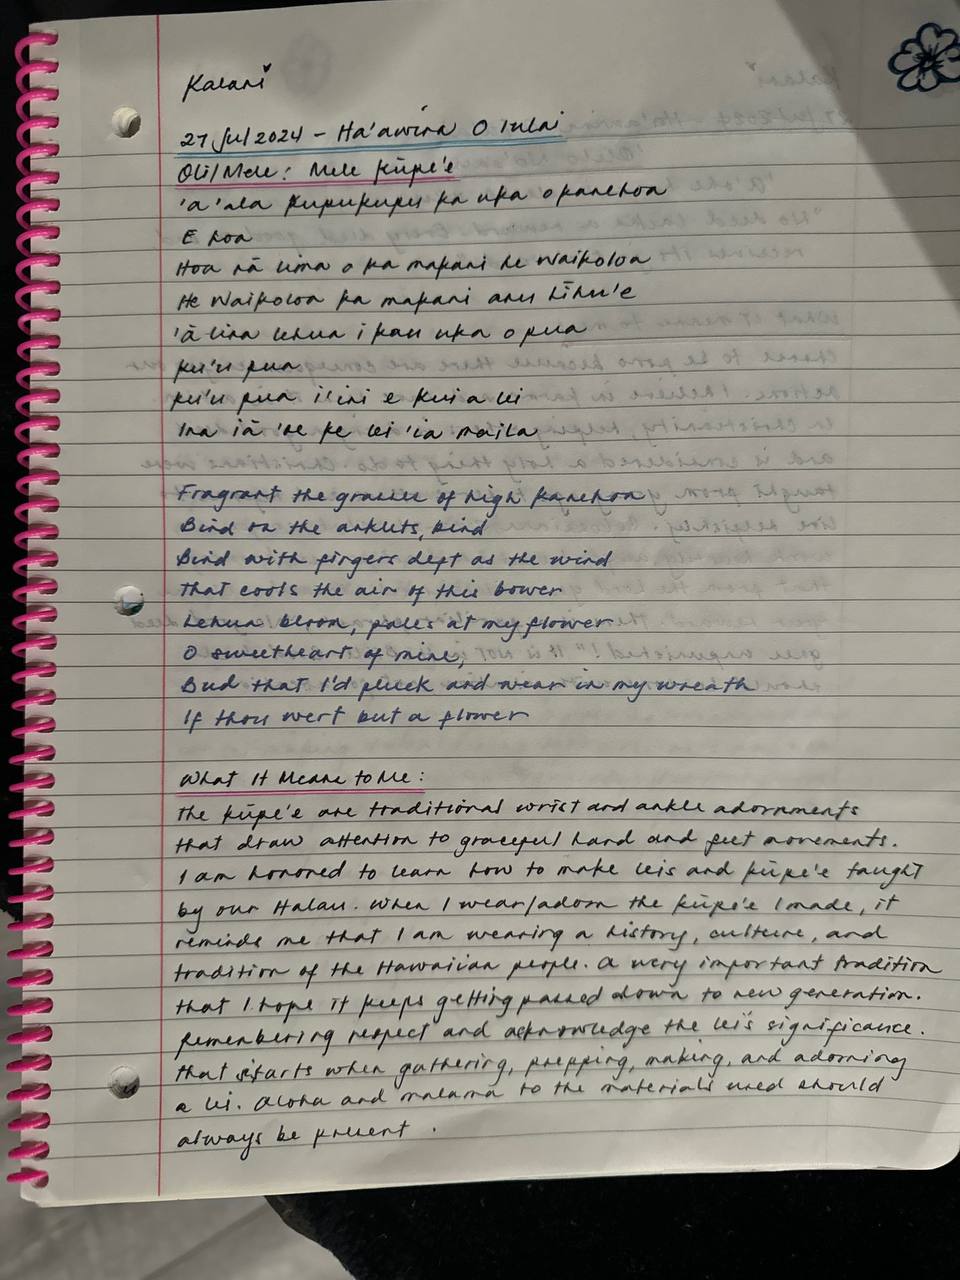 Kalani
27 Jul 2024 - Ha'awina O Iulai
Oli/Mele: Mele Kūpe'e
'a 'ala kupukupu ka uka o kanehoa
E hoa
Hoa nā lima o ka makani he Waikoloa
He Waikoloa ka makani anu līhu'e
'ā lina lehua i kau uka o pua
ku'u pua
ku'u pua i'ini e kui a lei
Ina iā 'oe ke lei 'ia maila
Fragrant the grasses of high kanehoa
Bind on the anklets, bind
Bind with fingers deft as the wind
That cools the air of this bower
Lehua bloom, pales at my flower
O sweetheart of mine,
Bud that I'd pluck and wear in my wreath
If thou wert but a flower
What It Means to Me:
The kūpe'e are traditional wrist and ankle adornments
that draw attention to graceful hand and feet movements.
I am honored to learn how to make leis and kūpe'e taught
by our Halau. When I wear/adorn the kūpe'e I made, it
reminds me that I am wearing a history, culture, and
tradition of the Hawaiian people. A very important tradition
that I hope it keeps getting passed down to new generation.
Remembering respect and acknowledge the lei's significance.
That starts when gathering, prepping, making, and adorning
a lei. Aloha and malama to the materials used should
always be present.